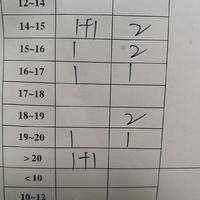 12~14
14~15 1+1 2
15~16 1 2
16~17 1 1
17~18
18~19 2
19~20 1 1
>20 1+1
<10
10~12